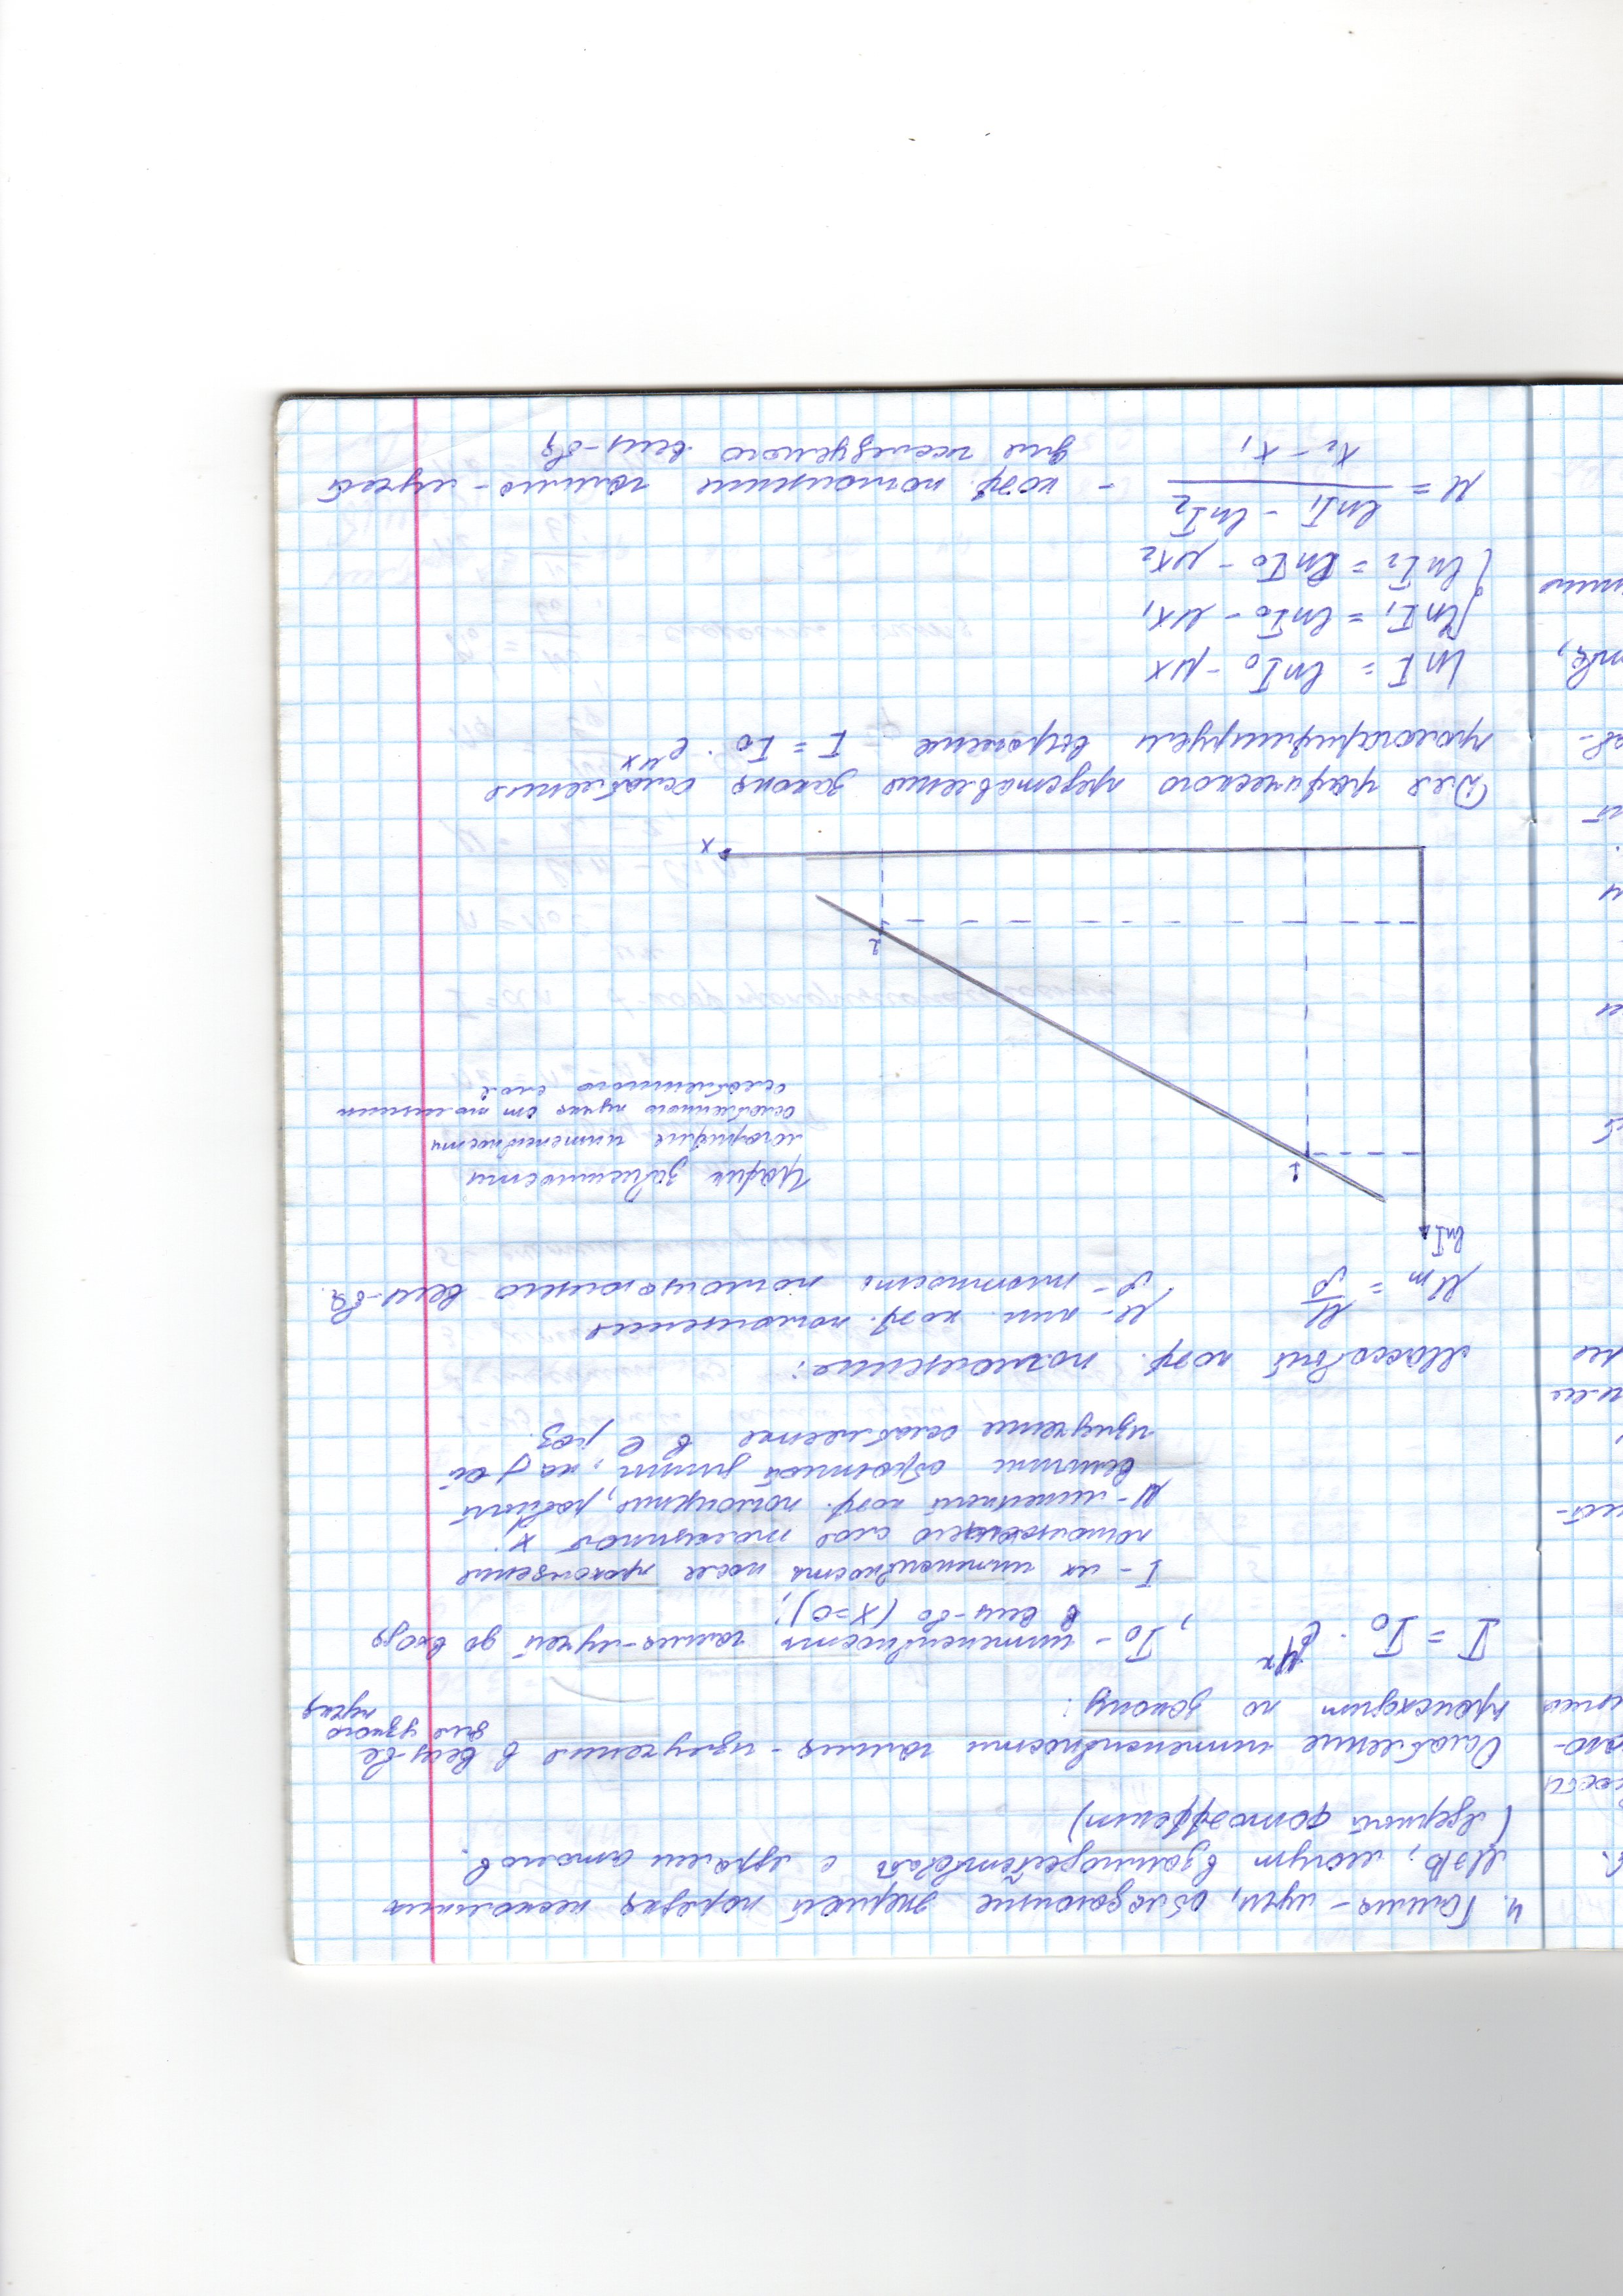 4. Гамма-лучи, обладающие энергией порядка нескольких
МэВ, могут взаимодействовать с ядрами атомов.
(ядерный фотоэффект)
Ослабление интенсивности гамма-излучения в вещ-ве
для узкого
пучка
происходит по закону:
I = I₀ · e^μx , I₀ - интенсивность гамма-лучей до входа
в вещ-во (x=0);
I - их интенсивность после прохождения
поглощающего слоя толщиной x;
μ - линейный коэф. поглощения, равный
величине обратной длины, на ∫ой
излучение ослабляется в e раз.
Массовый коэф. поглощения:
μm = μ/ρ
μ - лин. коэф. поглощения
ρ - плотность поглощающего вещ-ва.
lnI
1
График зависимости
логарифма интенсивности
ослабленного пучка от толщины
ослабленного слоя
2
x
Для графического представления закона ослабления
прологарифмируем выражение I = I₀ · e^μx
lnI = lnI₀ - μx
{lnI₁ = lnI₀ - μx₁
lnI₂ = lnI₀ - μx₂
μ = (lnI₁ - lnI₂)/(x₂ - x₁) - коэф. поглощения гамма-лучей
для исследуемого вещ-ва